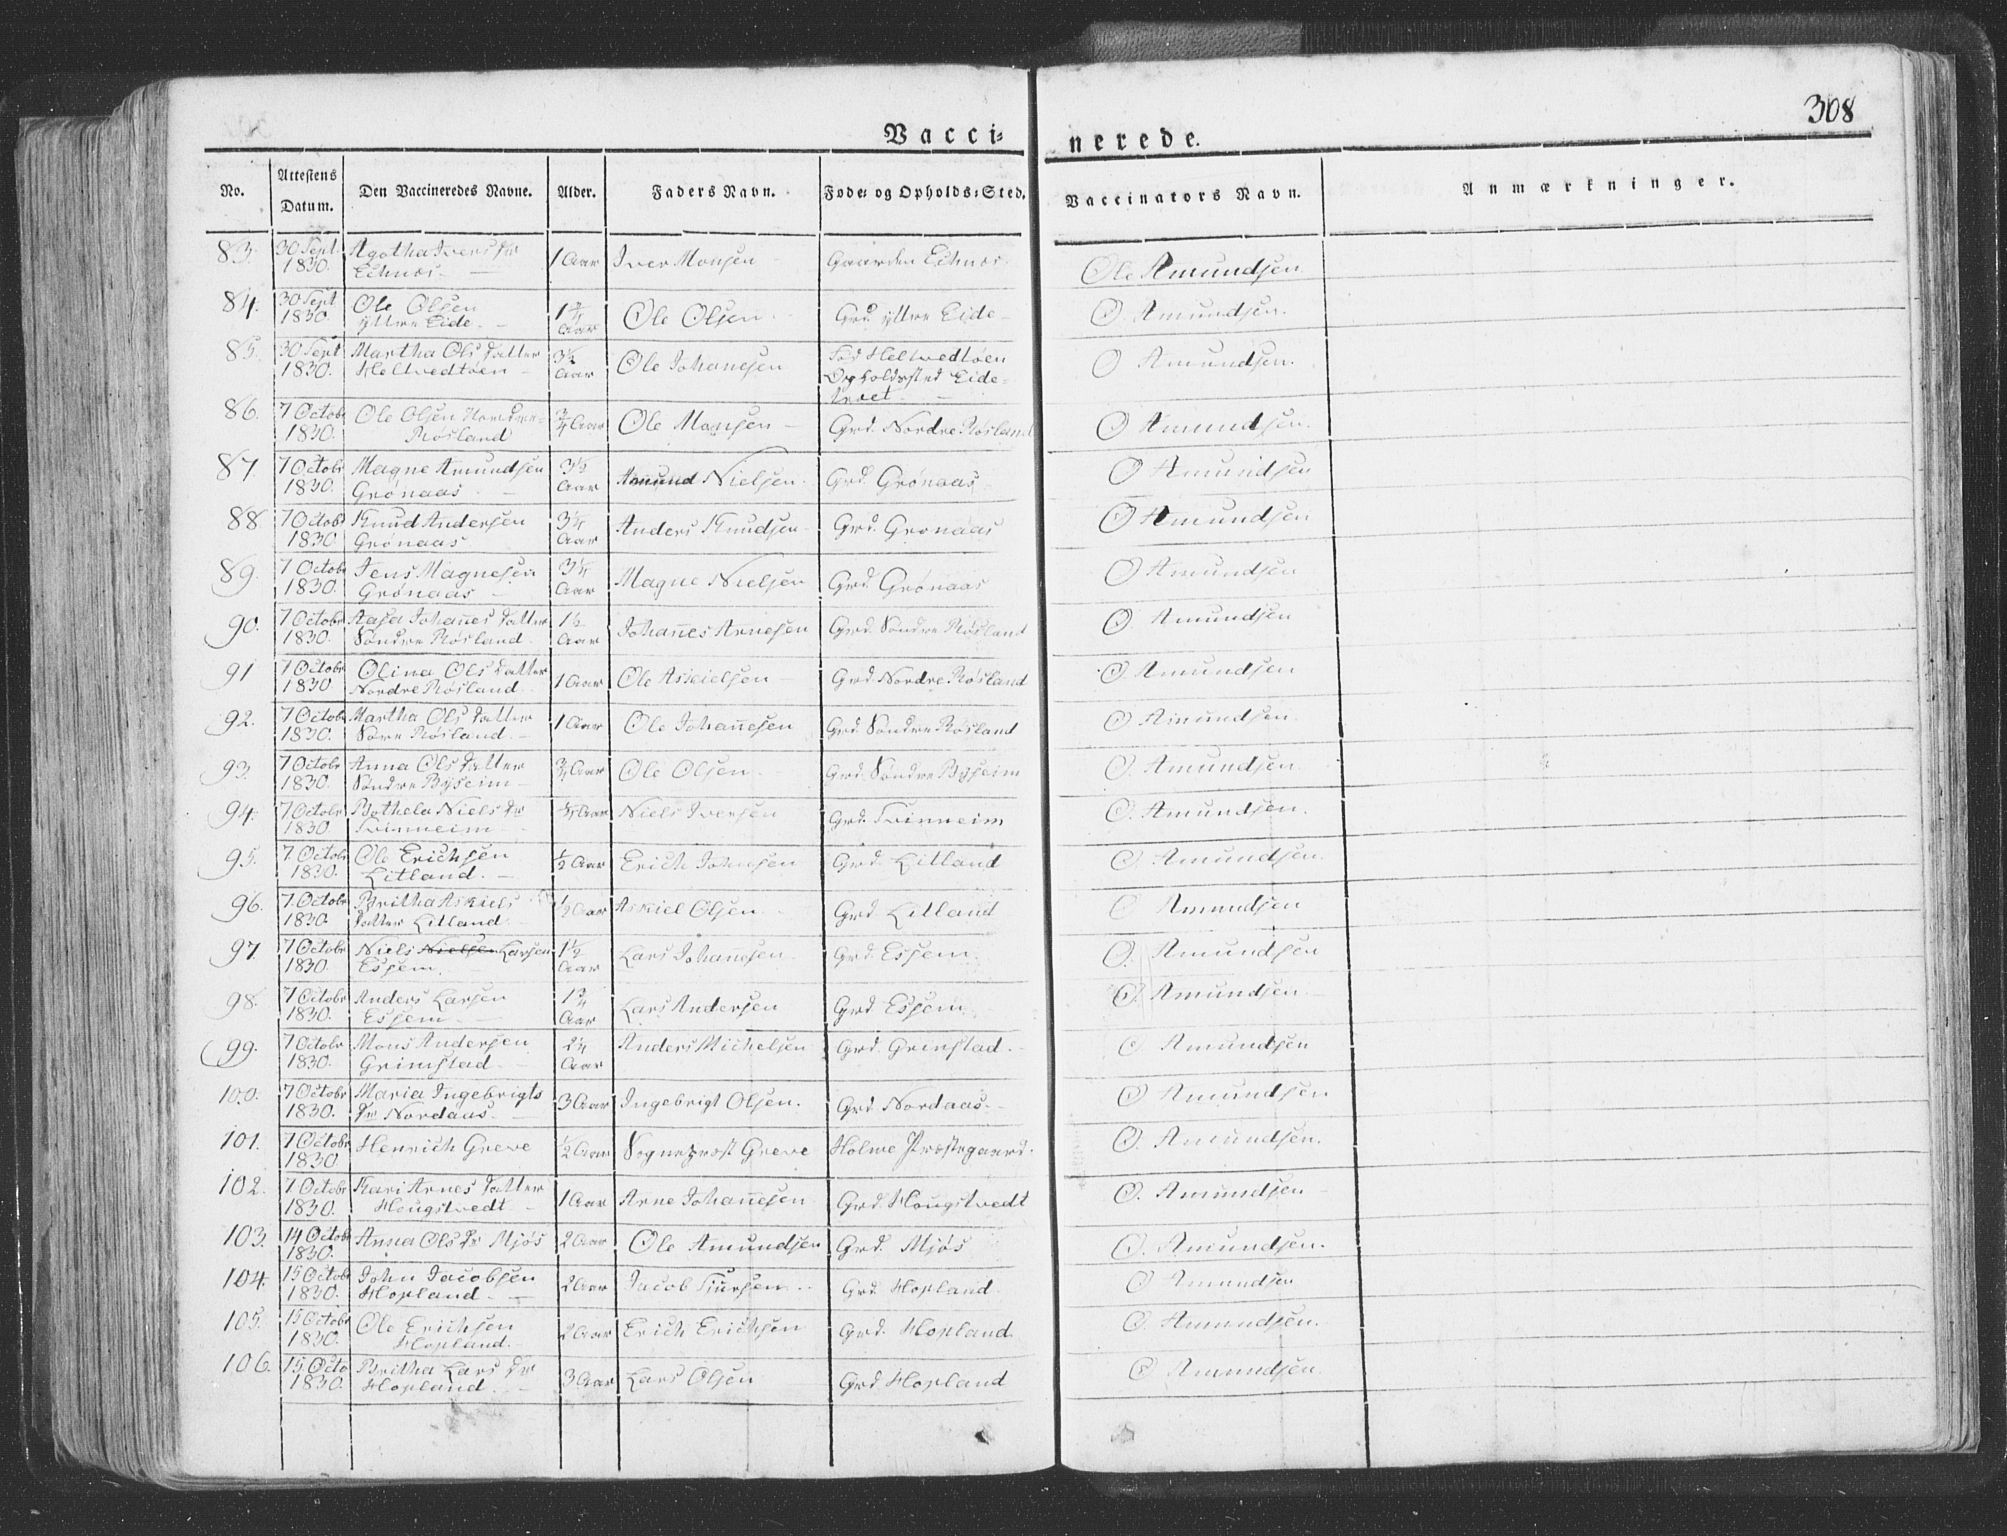 308
Vacci=
nerede.
No. Attestens Datum. Den Vaccineredes Navne. Alder. Faders Navn. Føde= og Opholds=Sted. Vaccinators Navn. Anmærkninger.
83. 30 Sept. Agotha Ivers Dr
1830. Echnes 1 Aar Iver Monsen Gaarden Echnes Ole Amundsen
84. 30 Sept Ole Olsen 1¾
1830 yttre Eide Aar Ole Olsen Grd. yttre Eide O. Amundsen.
85. 30 Sept Martha Ols Datter 3½ Fød Heltvedtøen
1830. Heltvedtøen Aar Ole Johanesen Opholdssted Eide= O Amundsen.
86. 7 Octobr Ole Olsen
1830. Røsland ¾ Aar Ole Monsen Grd. Nordre Røsland O Amundsen.
87. 7 Octobr Magne Amundsen 3½
1830. Grønaas Aar Amund Nielsen. Grd. Grønaas O Amundsen
88 7 Octobr Knud Andersen 3¼
1830 Grønaas Aar Anders Knudsen Grd. Grønaas O Amundsen
89. 7 Octobr Jens Magnesen 3¼
1830. Grønaas Aar Magne Nielsen Grd. Grønaas O Amundsen
90. 7 Octobr Aasa Johañes Datter 1½
1830. Søndre Røsland. Aar Johañes Arnesen Grd. Søndre Røsland O. Amundsen
91 7 Octobr Olina Ols Datter
1830 Nordre Røsland. 1 Aar Ole Askielsen Grd. Nordre Røsland O Amundsen
92. 7 Octobr Martha Ols Datter
1830. Søre Røsland. 1 Aar Ole Johañesen Grd. Søndre Røsland O. Amundsen.
93. 7 Octobr Anna Ols Datter
1830. Søndre Byseim ¾ Aar Ole Olsen Grd. Søndre Byseim O. Amundsen.
94. 7 Octobr Bothela Niels Dr
1830 Tvinneim Aar Niels Iversen Grd. Tvinneim O. Amundsen
95. 7 Octobr Ole Erichsen
1830. Litland. ½ Aar Erich Johnsen Grd. Litland O Amundsen.
96. 7 Octobr Britha Askiels
1830 Datter Litland. ½ Aar Askiel Olsen Grd Litland Amundsen
97. 7 Octobr Niels Nielsen Larsen 1½
1830. Essem. Aar Lars Johanesen Grd. Essem. O. Amundsen
98. 7 Octobr Anders Larsen 1¾
1830. Essem Aar Lars Andersen Grd Essem O. Amundsen.
99. 7 Octobr Mons Andersen 2¼
1830. Grimstad Aar Anders Michelsen Grd. Grimstad. O Amundsen
100. 7 Octobr Maria Ingebrigts
1830. Dr Nordaas. 3 Aar Ingebrigt Olsen. Grd. Nordaas. O Amundsen
101. 7 Octobr Henrich Greve
1830 ½ Aar Sogneprest Greve Holme Præstegaard. O. Amundsen.
102. 7 Octobr Kari Arnes Datter
1830. Hougstvedt 1 Aar Arne Johañesen Grd. Hougstvedt O. Amundsen
103. 14 Octobr Anna Ols Dr Mjøs
1830. 2 Aar Ole Amundsen Grd. Mjøs O. Amundsen.
104. 15 Octobr John Jacobsen
1830. Hopland. 2 Aar Jacob Grd. Hopland. O Amundsen
105. 15 Octobr Ole Erichsen
1830. Hopland. 2 Aar Erich Erichsen Grd. Hopland. O. Amundsen.
106. 15 Octo Britha Lars Dr
1830. Hopland. 3 Aar Lars Olsen Grd Hopland O Amundsen